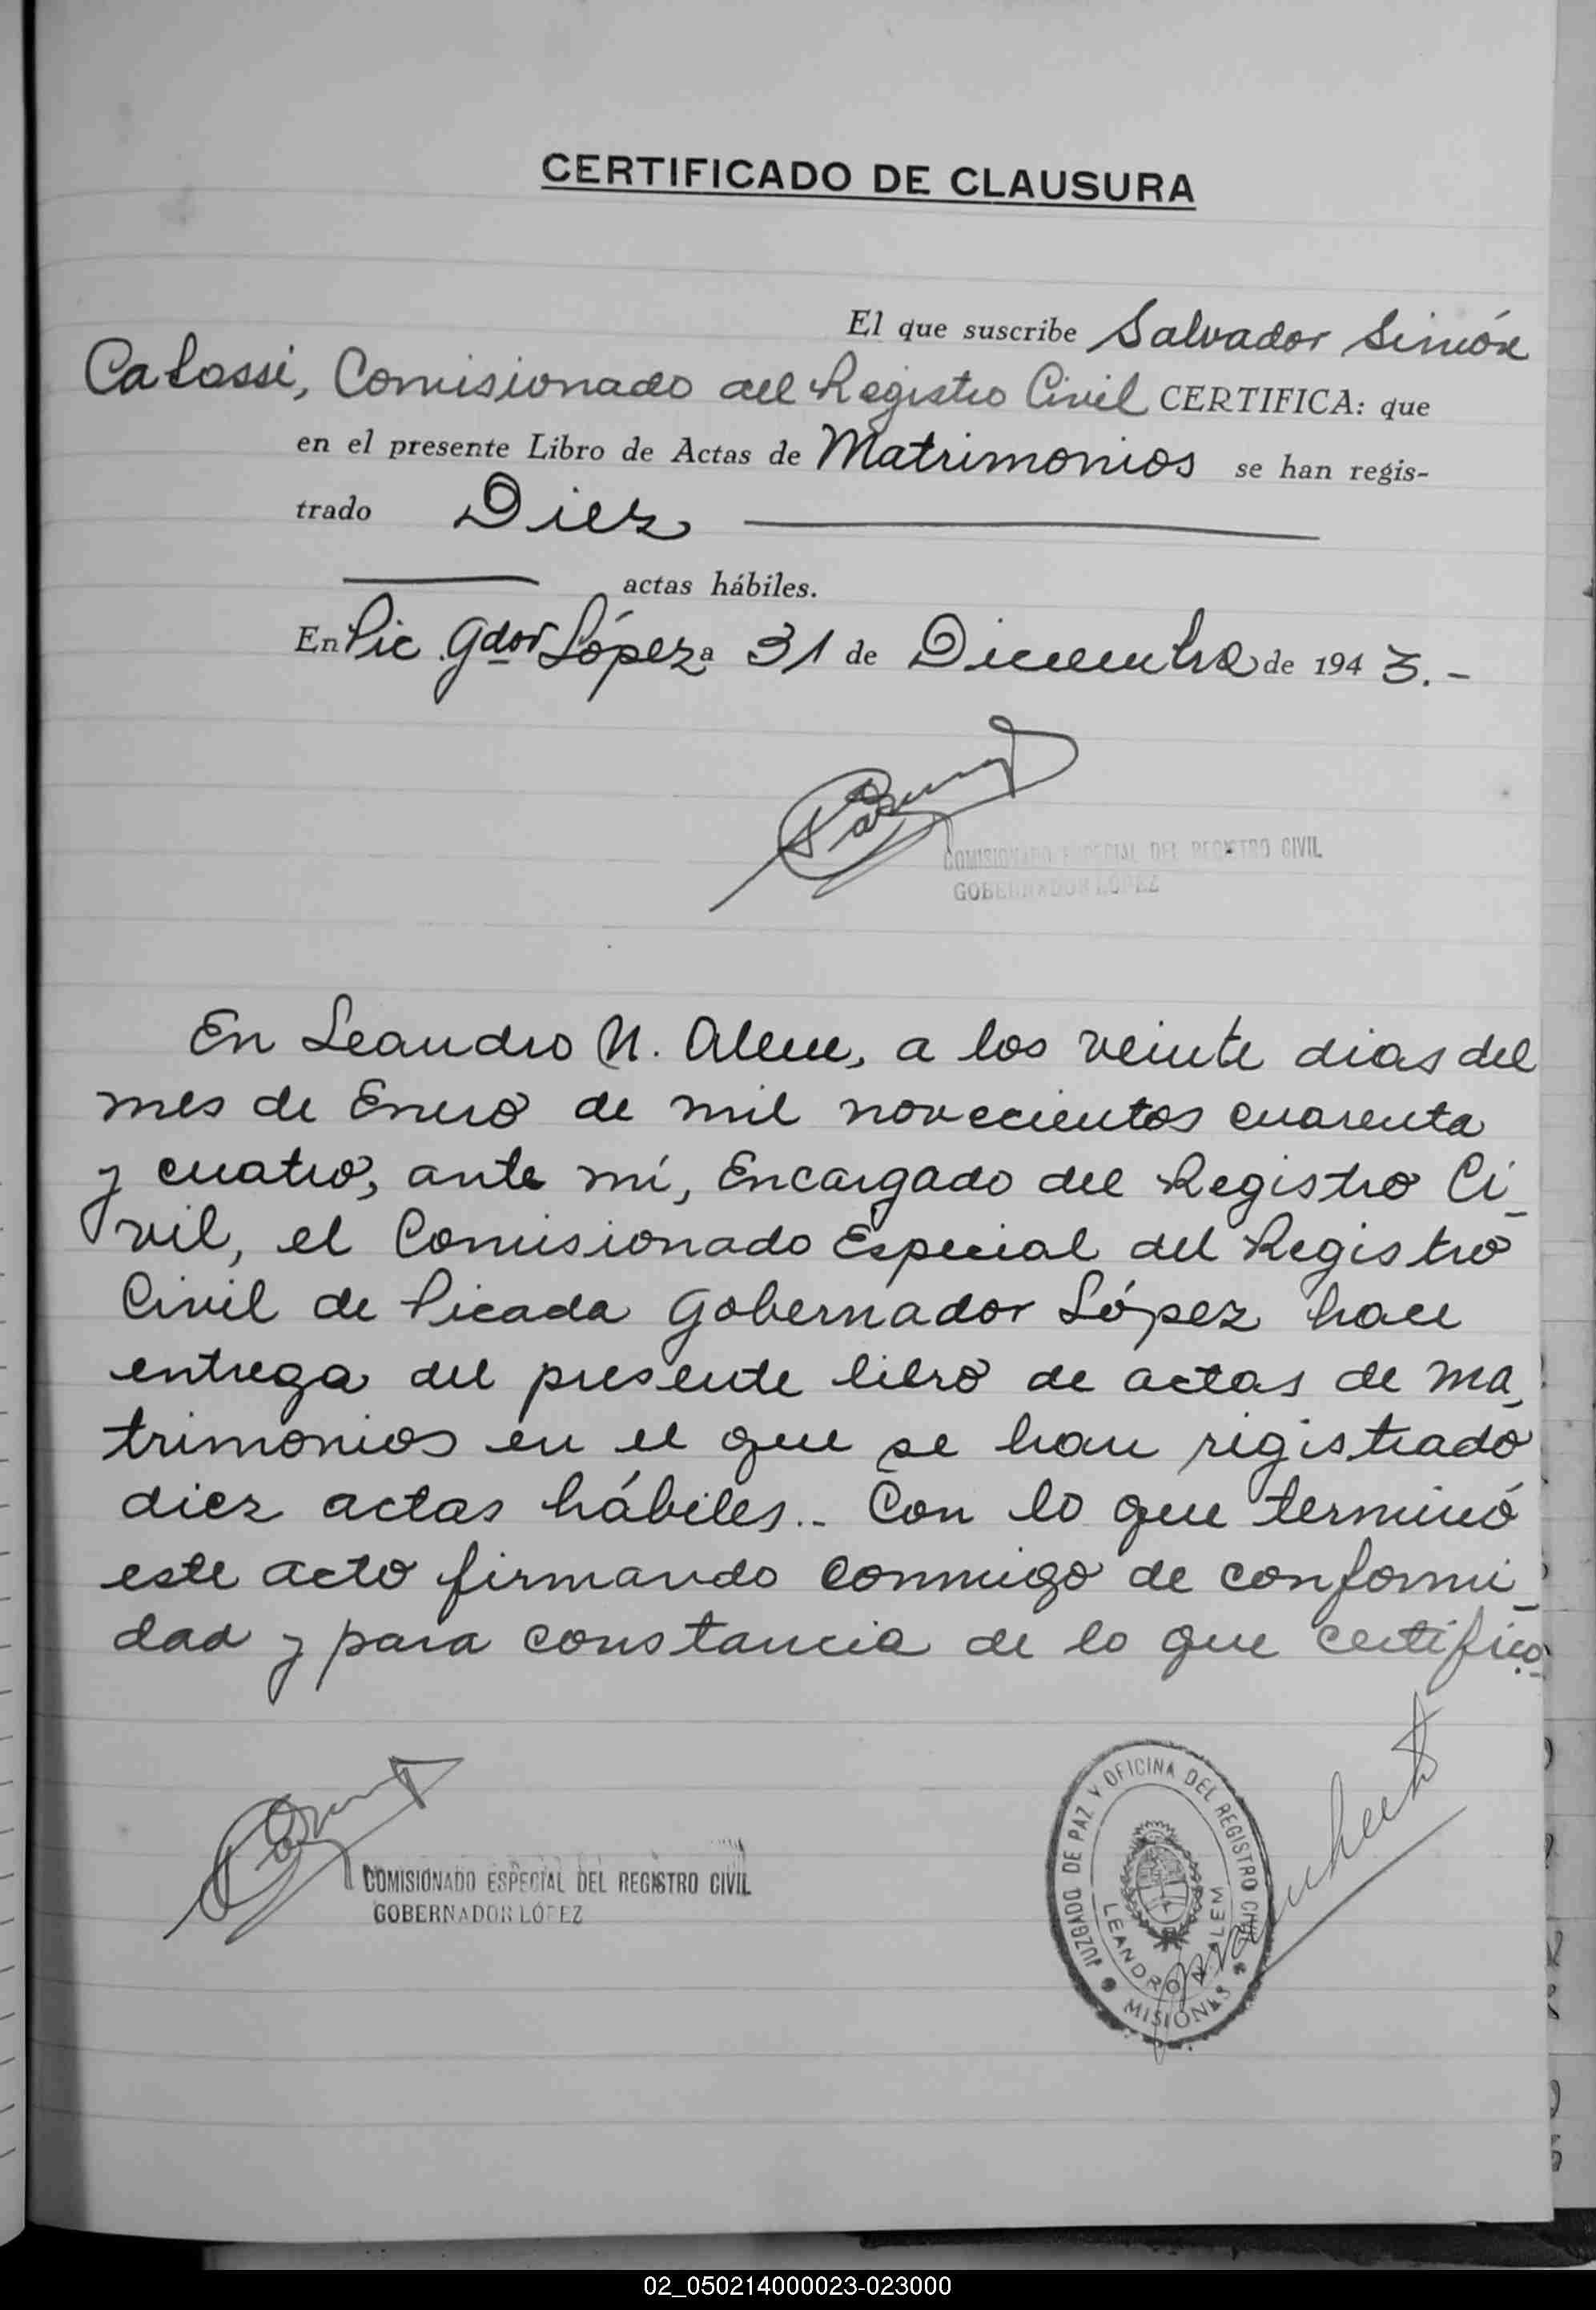 CERTIFICADO DE CLAUSURA
El que suscribe Salvador Simón
Calossi, Comisionado del Registro Civil CERTIFICA: que
en el presente Libro de Actas de Matrimonios se han regis-
trado Diez
actas hábiles.
En Pic. Gdor López a 31 de Diciembre de 1943.-
COMISIONADO ESPECIAL DEL REGISTRO CIVIL
GOBERNADOR LÓPEZ
En Leandro N. Alem, a los veinte dias del
mes de Enero de mil novecientos cuarenta
y cuatro, ante mí, Encargado del Registro Ci-
vil, el Comisionado Especial del Registro
Civil de Picada Gobernador López hace
entrega del presente libro de actas de ma-
trimonios en el que se han registrado
diez actas hábiles.- Con lo que terminó
este acto firmando conmigo de conformi-
dad y para constancia de lo que certifico.-
COMISIONADO ESPECIAL DEL REGISTRO CIVIL
GOBERNADOR LÓPEZ
JUZGADO DE PAZ Y OFICINA DEL REGISTRO CIVIL
LEANDRO N. ALEM
MISIONES
02_050214000023-023000